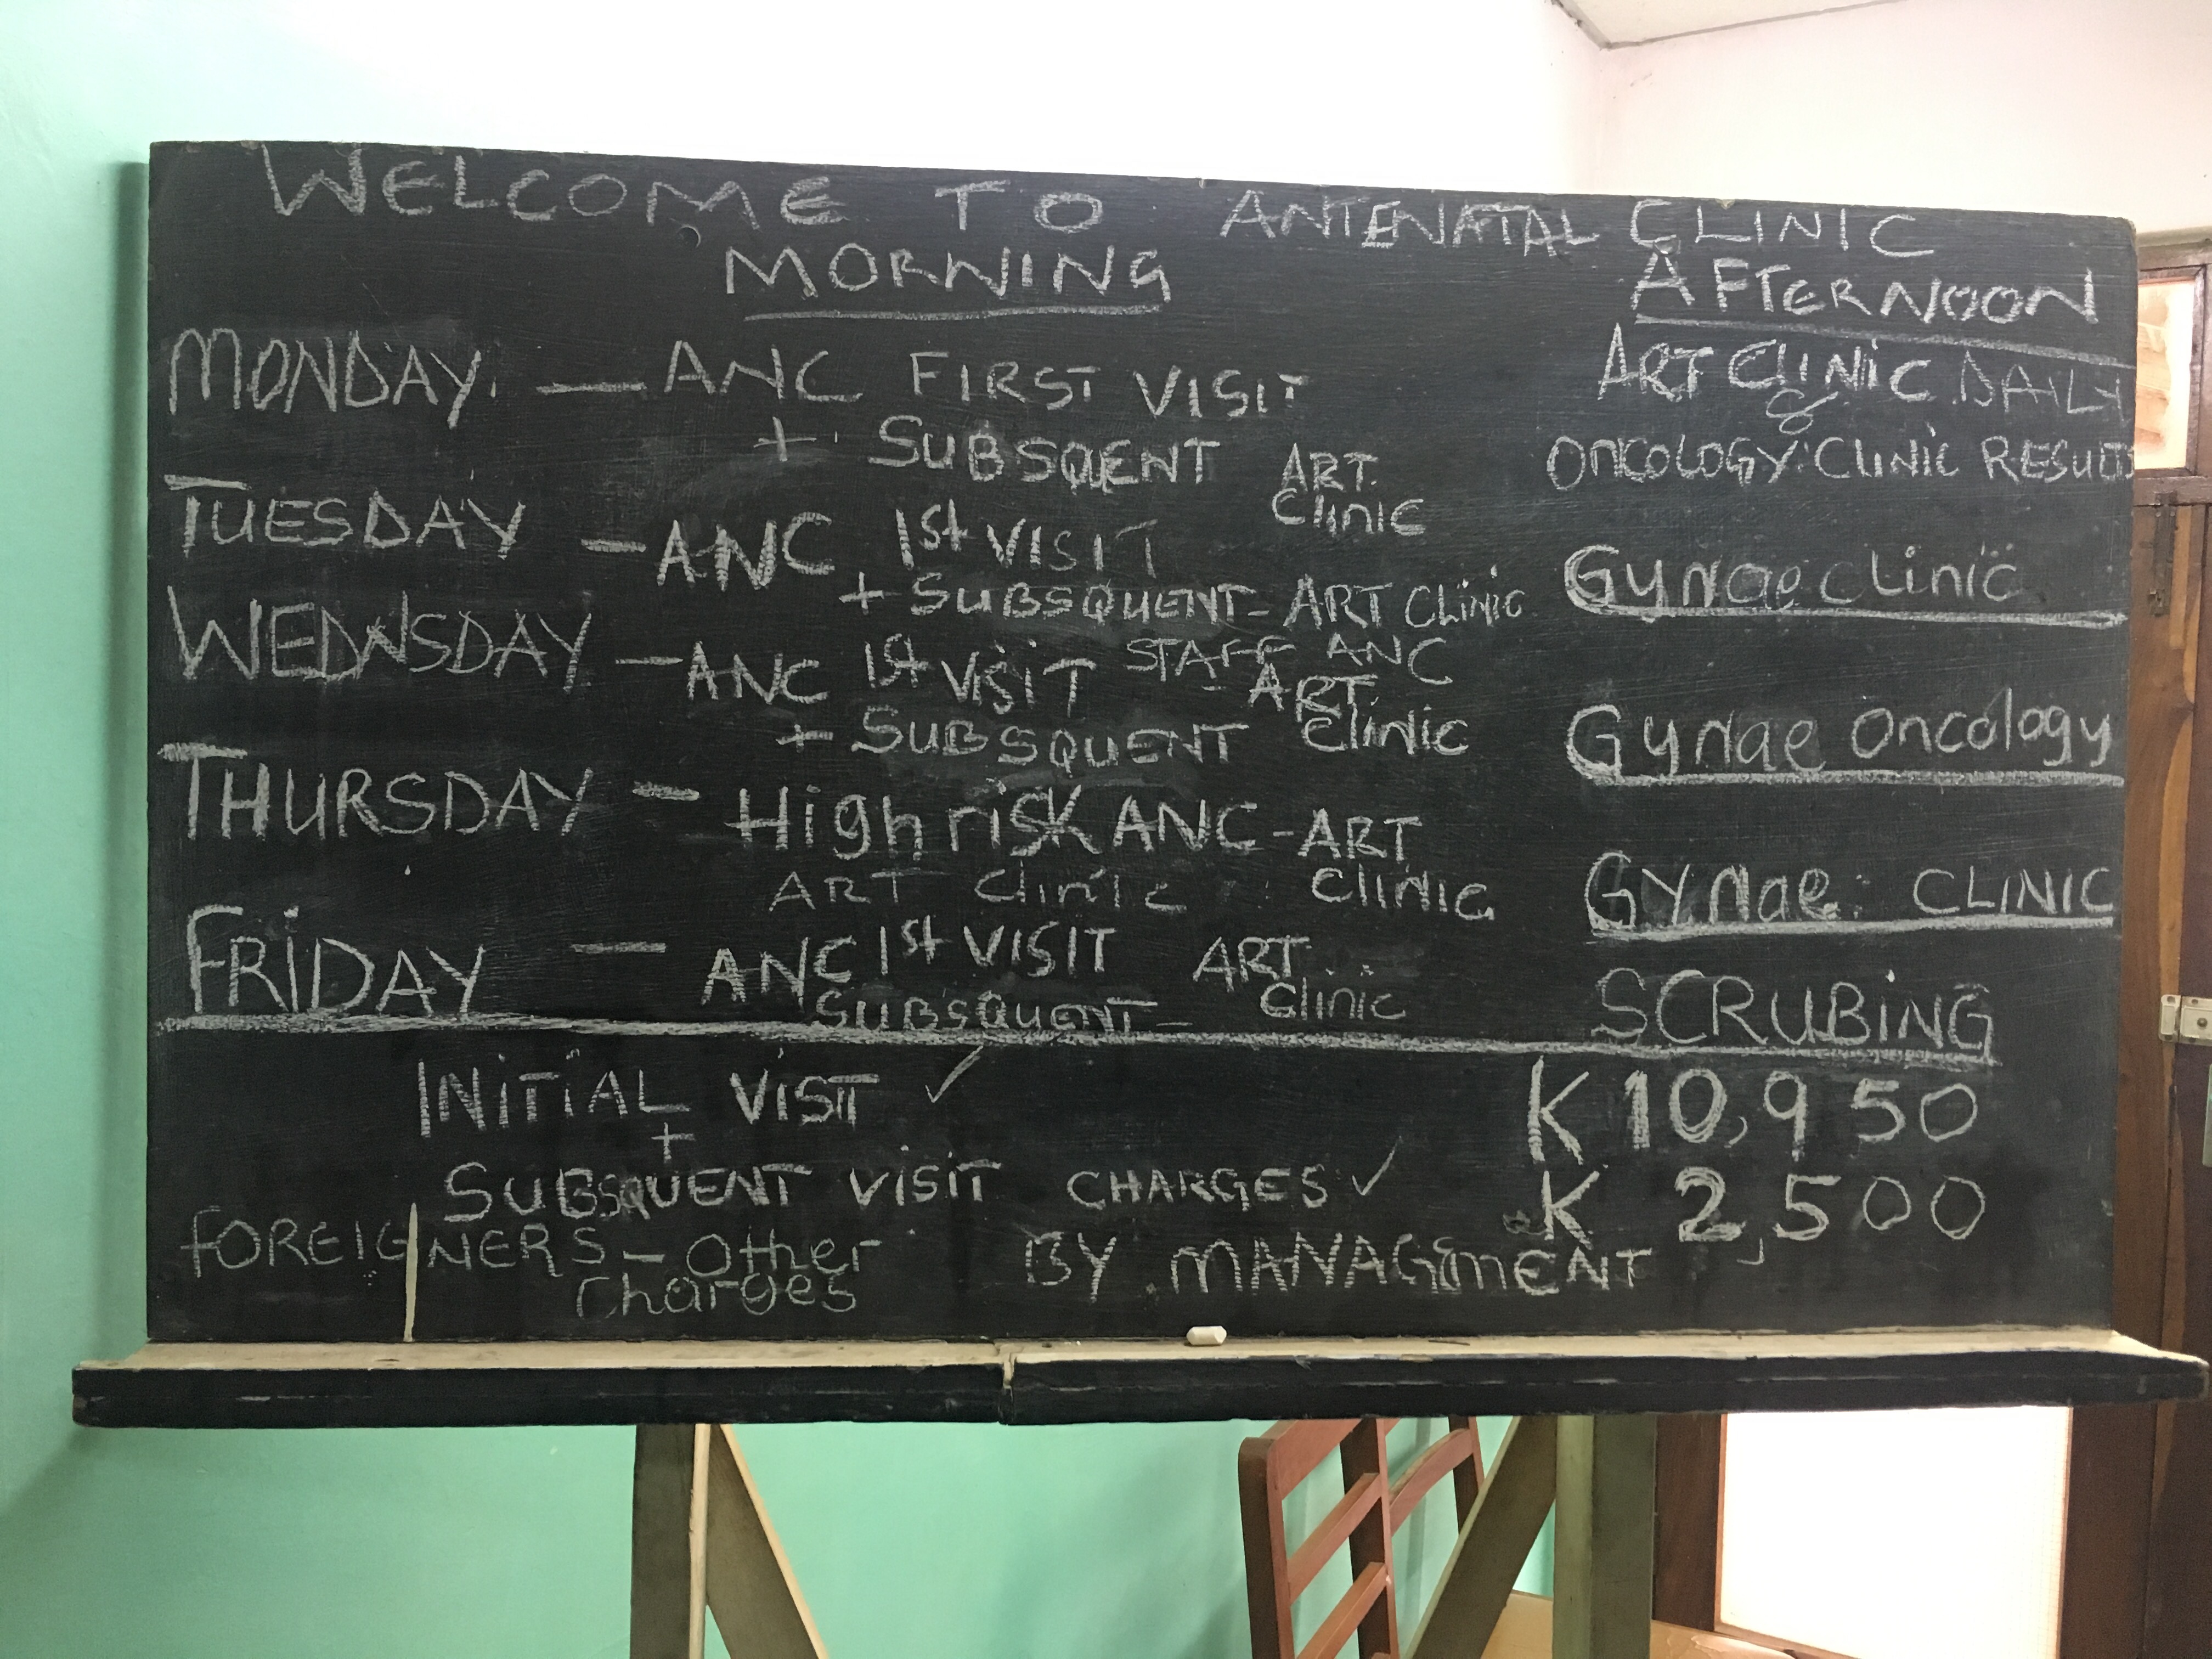 WELCOME TO ANTENATAL CLINIC
MORNING
AFTERNOON
MONDAY. — ANC FIRST VISIT
+ SUBSQENT ART.
Clinic
ART CLINIC DAILY
&
ONCOLOGY CLINIC RESULTS
TUESDAY — ANC 1st VISIT
+ SUBSQUENT - ART CLINIC
Gynae clinic
WEDNSDAY — ANC 1st VISIT STAFF ANC
+ SUBSQUENT ART.
Clinic
Gynae oncology
THURSDAY — High risk ANC - ART
CLINIC
ART Clinic
Gynae: CLINIC
FRIDAY — ANC 1st VISIT ART
SUBSQUENT - Clinic
SCRUBING
INITIAL VISIT ✓ K10,950
+
SUBSQUENT VISIT CHARGES ✓ K 2,500
FOREIGNERS — Other BY MANAGMENT
Charges